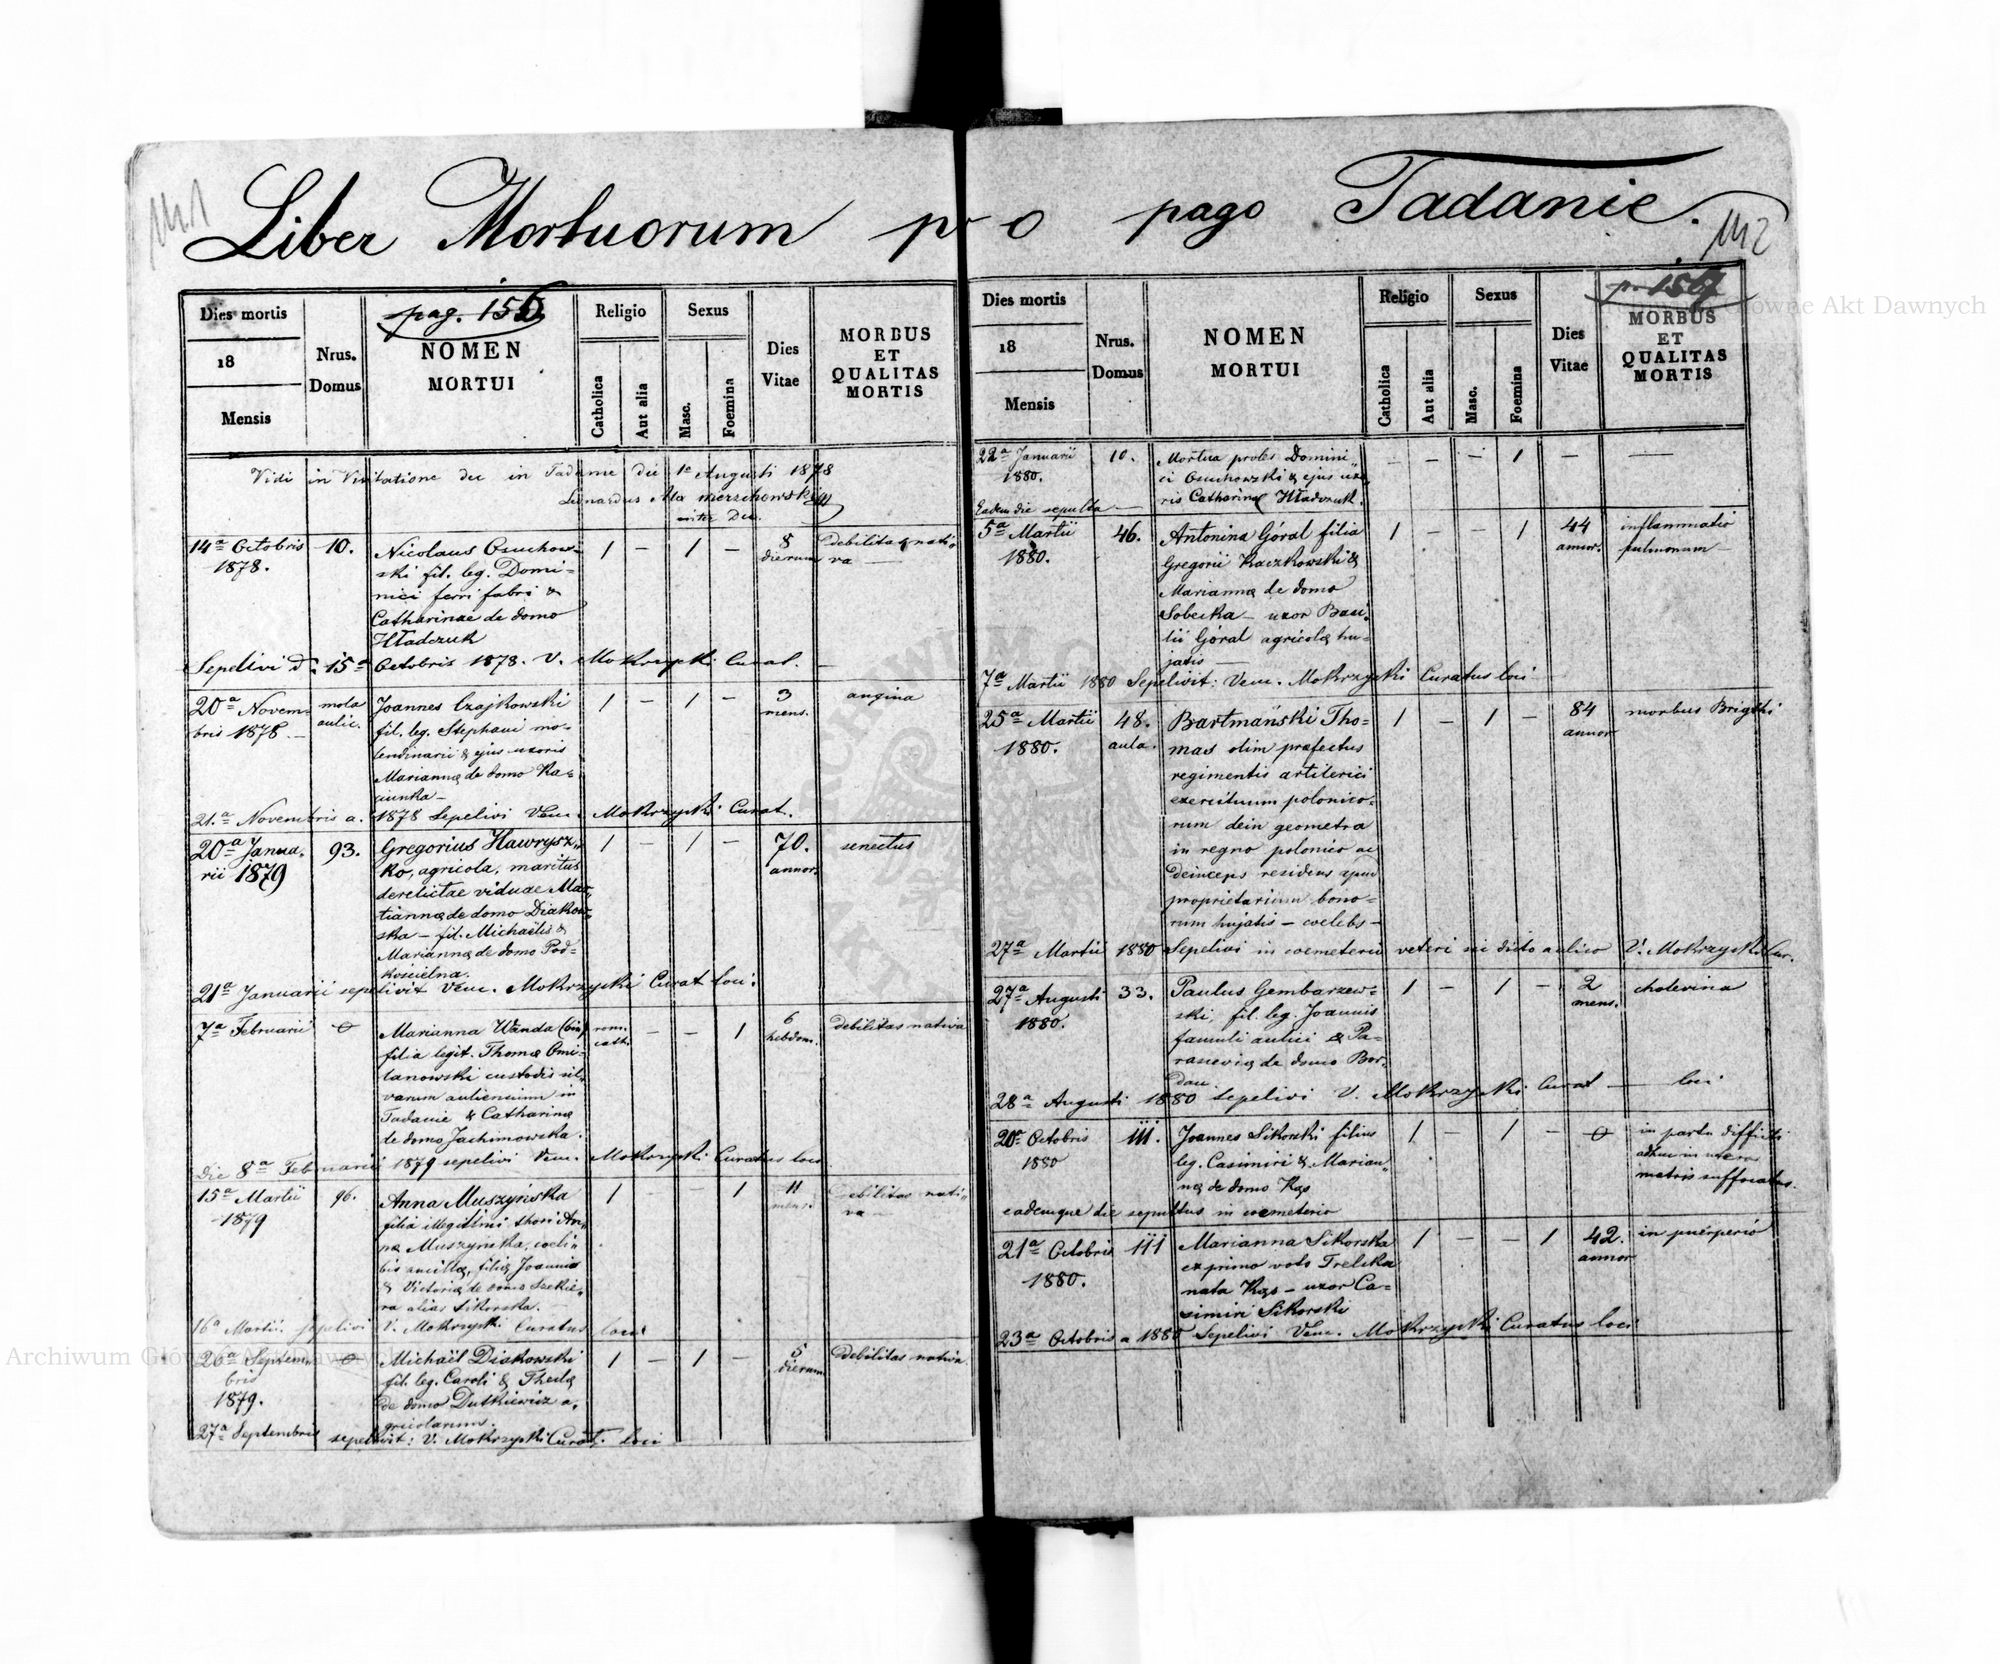 Liber Mortuorum pro pago Tadanie.
141
142
pag. 156
Dies mortis
18
Mensis
Nrus.
Domus
NOMEN
MORTUI
Religio
Catholica
Aut alia
Sexus
Masc.
Foemina
Dies
Vitae
MORBUS
ET
QUALITAS
MORTIS
Vidi in Visitatione dec in Tadanie die 1a Augusti 1878
Leonardus
14a Octobris 10. Nicolaus Osuchow- 1 — 1 — 8 debilitas nati-
1878. ski fil. leg. Domi- dierum va —
nici ferri fabri &
Catharinae de domo
Hładczuk
Sepelivi d. 15a Octobris 1878. V. Mokrzycki Curat. —
20a Novem- mola Joannes Czajkowski 1 — 1 — 3 angina
bris 1878. — aulic. fil. leg. Stephani mo- mens.
lendinarii & ejus uxoris
Mariannę de domo Ka-
21a Novembris a. 1878 Sepelivi Ven. Mokrzycki Curat.
20a Janua- 93. Gregorius Hawrysz- 1 — 1 — 70. senectus
rii 1879 ko, agricola, maritus annor.
derelictae viduae Mar-
iannę de domo Diakow-
ska — fil. Michaelis &
Mariannę de domo Pod-
kościelna.
21a Januarii sepelivit Ven. Mokrzycki Curat loci:
7a Februarii 0 Marianna Wanda (bin) rom. — — 1 6 debilitas nativa
filia legit. Thomę Omi- cath. hebdom.
lanowski custodis sil-
varum auliensium in
Tadanie & Catharinę
de domo Jachimowska.
Die 8a Februarii 1879 sepelivi Ven. Mokrzycki Curatus loci
15a Martii 96. Anna Muszyńska 1 — — 1 11 debilitas nati-
1879 filia illegitimi thori An- mens. va —
nę Muszyńska, coeli-
bis ancillę, filię Joannis
& Victorię de domo Szekie-
ra alias Sikorska.
16a Martii sepelivi V. Mokrzycki Curatus loci
26a Septem- 0 Michaël Diakowski 1 — 1 — 5 debilitas nativa
bris fil. leg. Caroli & Theclę dierum
1879. de domo Dutkiewicz a-
gricolarum.
27a Septembris sepelivit: V. Mokrzycki Curat. loci
p. 157
Dies mortis
18
Mensis
Nrus.
Domus
NOMEN
MORTUI
Religio
Catholica
Aut alia
Sexus
Masc.
Foemina
Dies
Vitae
MORBUS
ET
QUALITAS
MORTIS
22a Januarii 10. Mortua proles Domini- — — — 1 — —
1880. ci Osuchowski & ejus uxo-
ris Catharinę Hładczuk.
Eadem die sepulta —
5a Martii 46. Antonina Góral filia 1 — — 1 44 inflammatio
1880. Gregorii Kaczkowski & annor. pulmonum —
Mariannę de domo
Sobecka — uxor Basi-
lii Góral agricolę hu-
jatis —
7a Martii 1880 Sepelivit: Ven. Mokrzycki Curatus loci
25a Martii 48. Bartmański Tho- 1 — 1 — 84 morbus Brigthi
1880. aula. mas olim praefectus annor
regimentis artilerici
exercituum polonico-
rum dein geometra
in regno polonico ac
deinceps residens apud
proprietarium bono-
rum hujatis — coelebs —
27a Martii 1880 Sepelivi in coemeterio veteri sic dicto aulico V. Mokrzycki Cur.
27a Augusti 33. Paulus Gembarzew- 1 — 1 — 2 cholerina
1880. ski, fil. leg. Joannis mens.
famuli aulici & Pa-
rascevię de domo Bor-
dan.
28a Augusti 1880 Sepelivi V. Mokrzycki Curat — loci
20a Octobris 111. Joannes Sikorski filius 1 — 1 — 0 in partu difficili
1880 leg. Casimiri & Marian- adhuc in utero
nę de domo Kęs matris suffocatus.
eademque die sepultus in coemeterio
21a Octobris 111 Marianna Sikorska 1 — — 1 42. in puerperio
1880. ex primo voto Trelska annor
nata Kęs — uxor Ca-
simiri Sikorski
23a Octobris a 1880 Sepelivi Ven. Mokrzycki Curatus loci
Archiwum Główne Akt Dawnych
Archiwum Główne Akt Dawnych